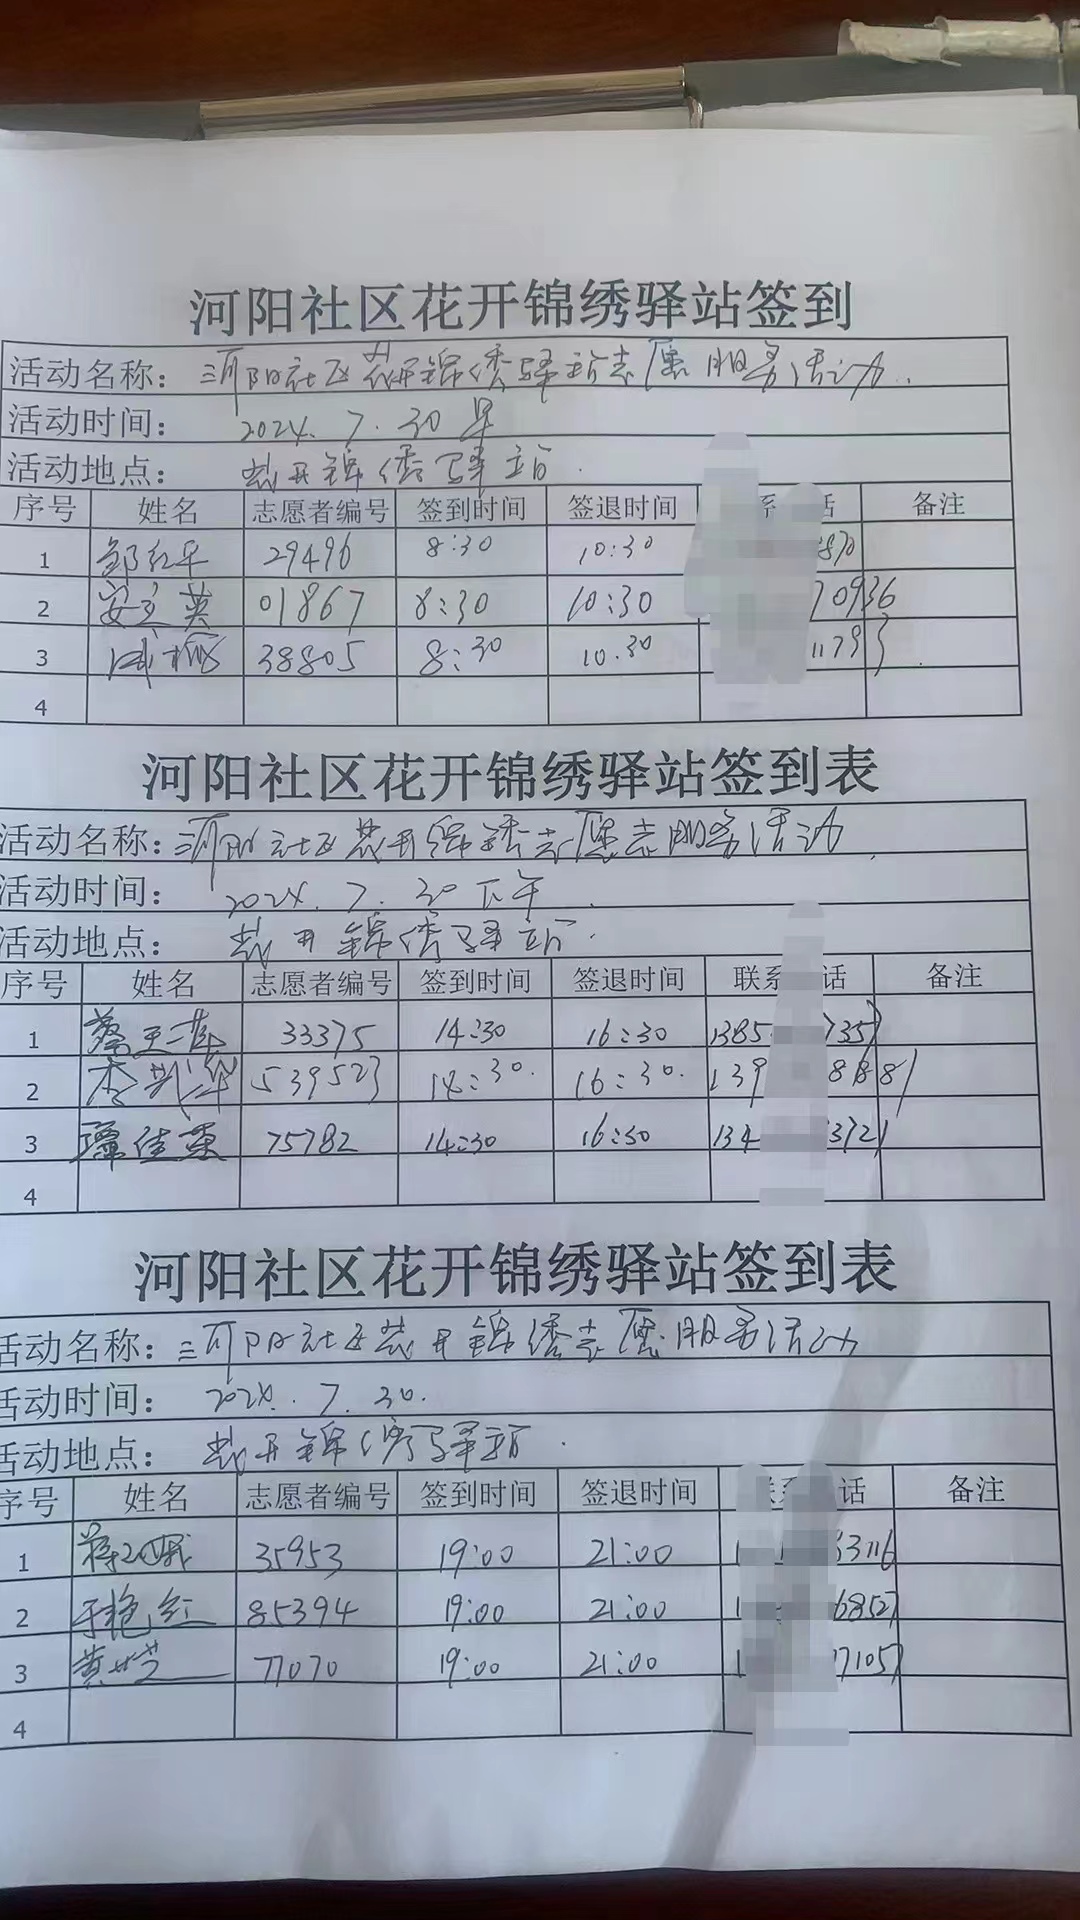 河阳社区花开锦绣驿站签到
活动名称: 河阳社区花开锦绣驿站志愿服务活动.
活动时间: 2024.7.30 早
活动地点: 花开锦绣驿站.
序号 姓名 志愿者编号 签到时间 签退时间 系 话 备注
1 邹红年 29496 8:30 10:30 870
2 安立英 01867 8:30 10:30 70936
3 38805 8:30 10.30 11793
4
河阳社区花开锦绣驿站签到表
活动名称: 河阳社区花开锦绣志愿志服务活动
活动时间: 2024.7.30下午.
活动地点: 花开锦绣驿站.
序号 姓名 志愿者编号 签到时间 签退时间 联系 话 备注
1 33375 14:30 16:30 1385 7357
2 539523 14:30. 16:30. 139 8881
3 75782 14:30 16:30 134 3721
4
河阳社区花开锦绣驿站签到表
活动名称: 河阳社区花开锦绣志愿服务活动
活动时间: 2024.7.30.
活动地点: 花开锦绣驿站.
序号 姓名 志愿者编号 签到时间 签退时间 联系 话 备注
1 35953 19:00 21:00 1 33116
2 于艳红 85394 19:00 21:00 1 68527
3 黄世芝 77070 19:00 21:00 1 71057
4